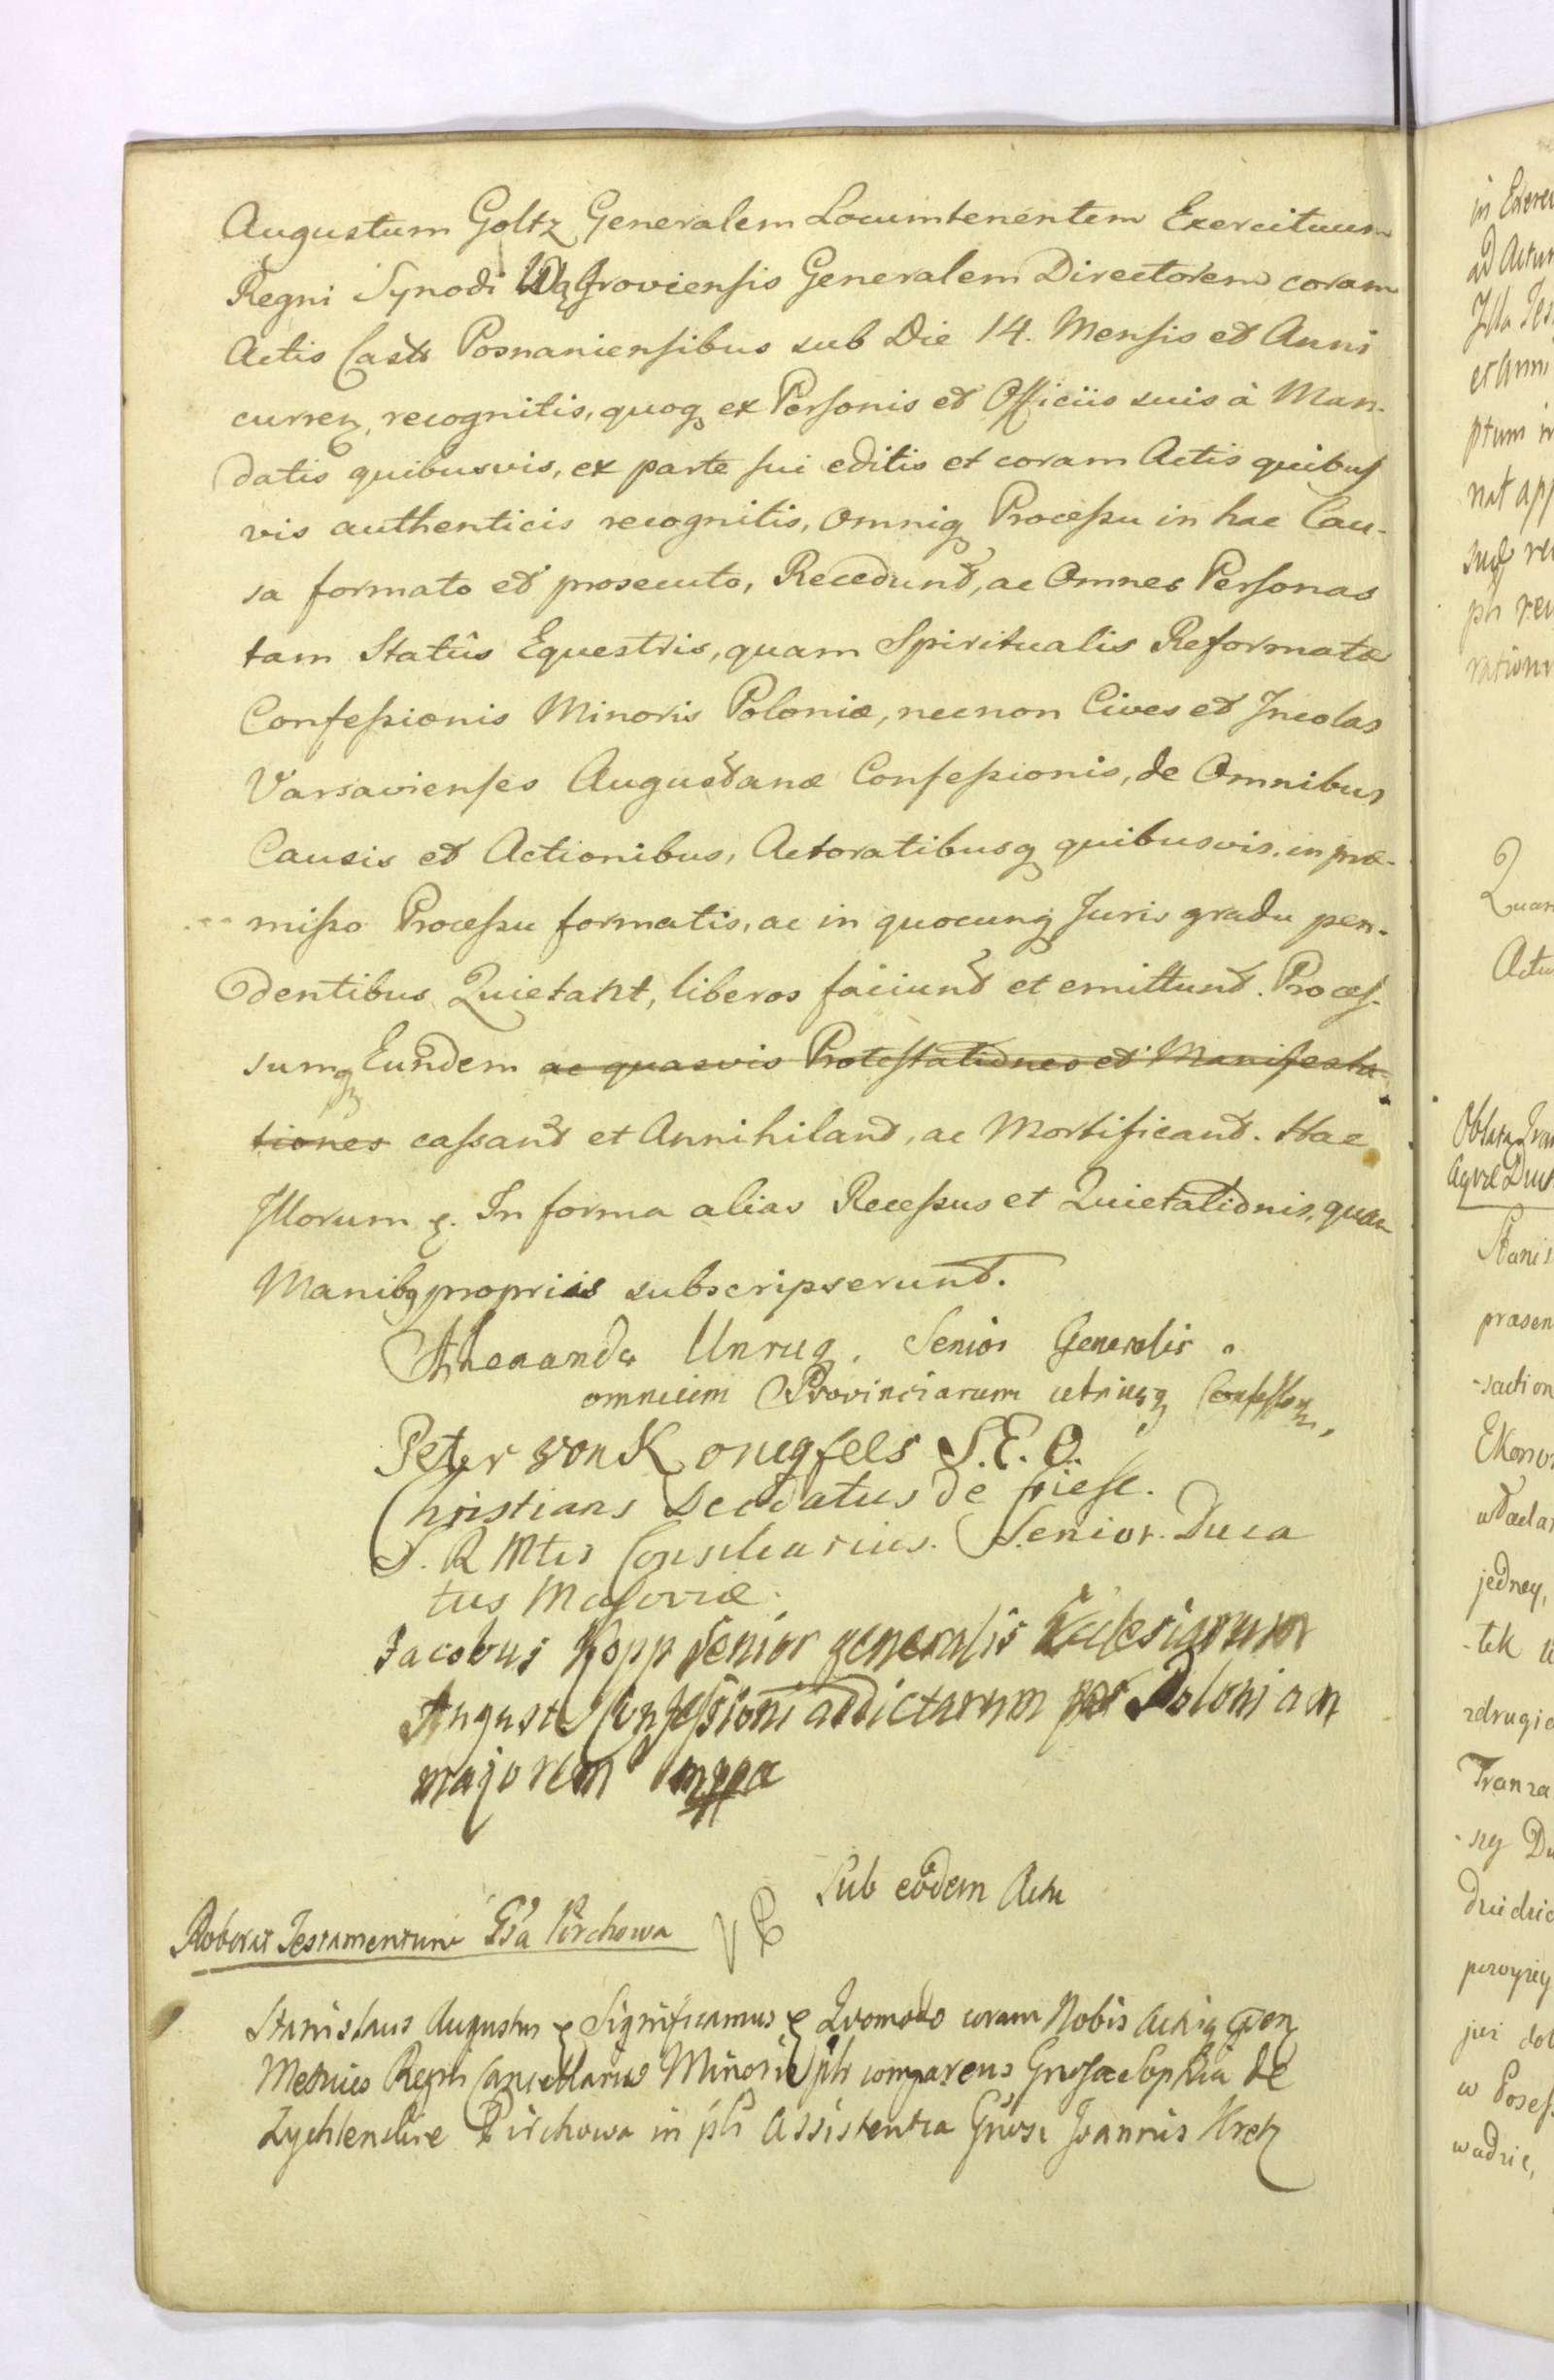 Augustum Goltz Generalem Locumtenentem Exercituum
Regni Synodi Węgroviensis Generalem Directorem coram
Actis Castr Posnaniensibus sub Die 14. Mensis et Anni
curren, recognitis, quoq ex Personis et Officiis suis à Man-
datis quibusvis, ex parte sui editis et coram Actis quibus
vis authenticis recognitis, omniq Processu in hac Cau-
sa formato et prosecuto, Recedunt, ac Omnes Personas
tam Statûs Equestris, quam Spiritualis Reformatæ
Confessionis Minoris Poloniæ, necnon Cives et Incolas
Varsavienses Augustanæ Confessionis, de Omnibus
Causis et Actionibus, Actoratibusq quibusvis in præ-
misso Processu formatis, ac in quocunq Juris gradu pen-
dentibus Quietant, liberos faciunt et emittunt. Proces-
sumq Eundem ac quasvis Protestationes et Manifesta-
tiones cassant et Annihilant, ac Mortificant. Hac
Illorum In forma alias Recessus et Quietationis, quam
Manibq propriis subscripserunt.
Alexander Unrug. Senior Generalis
omnium Provinciarum utriusq
Peter von Konigfels S. E. O.
Christians Deodatus de friese.
S. R Mtis Consiliarius. Senior. Duca
tus Masoviæ.
Jacobus Kopp Senior generalis Ecclesiarum
August Confessioni addictarum per Poloniam
majorem mppa
Sub eodem Actu
Roborat Testamentum Gsa Pirchowa
Stanislaus Augustus Significamus Quomodo coram Nobis Actisq
Metrices Regni Cancellariæ Minoris pls comparens Gnosa Sophia de
Zychlendie Pirchowa in pli Assistentia Gnosi Joannis
in
ad
Jsta
et Anni
ptum in
nat
ph
Actu
Oblata
Stanis
præsen
-saction
jedney,
-tek
zdrugie
Tranza
w